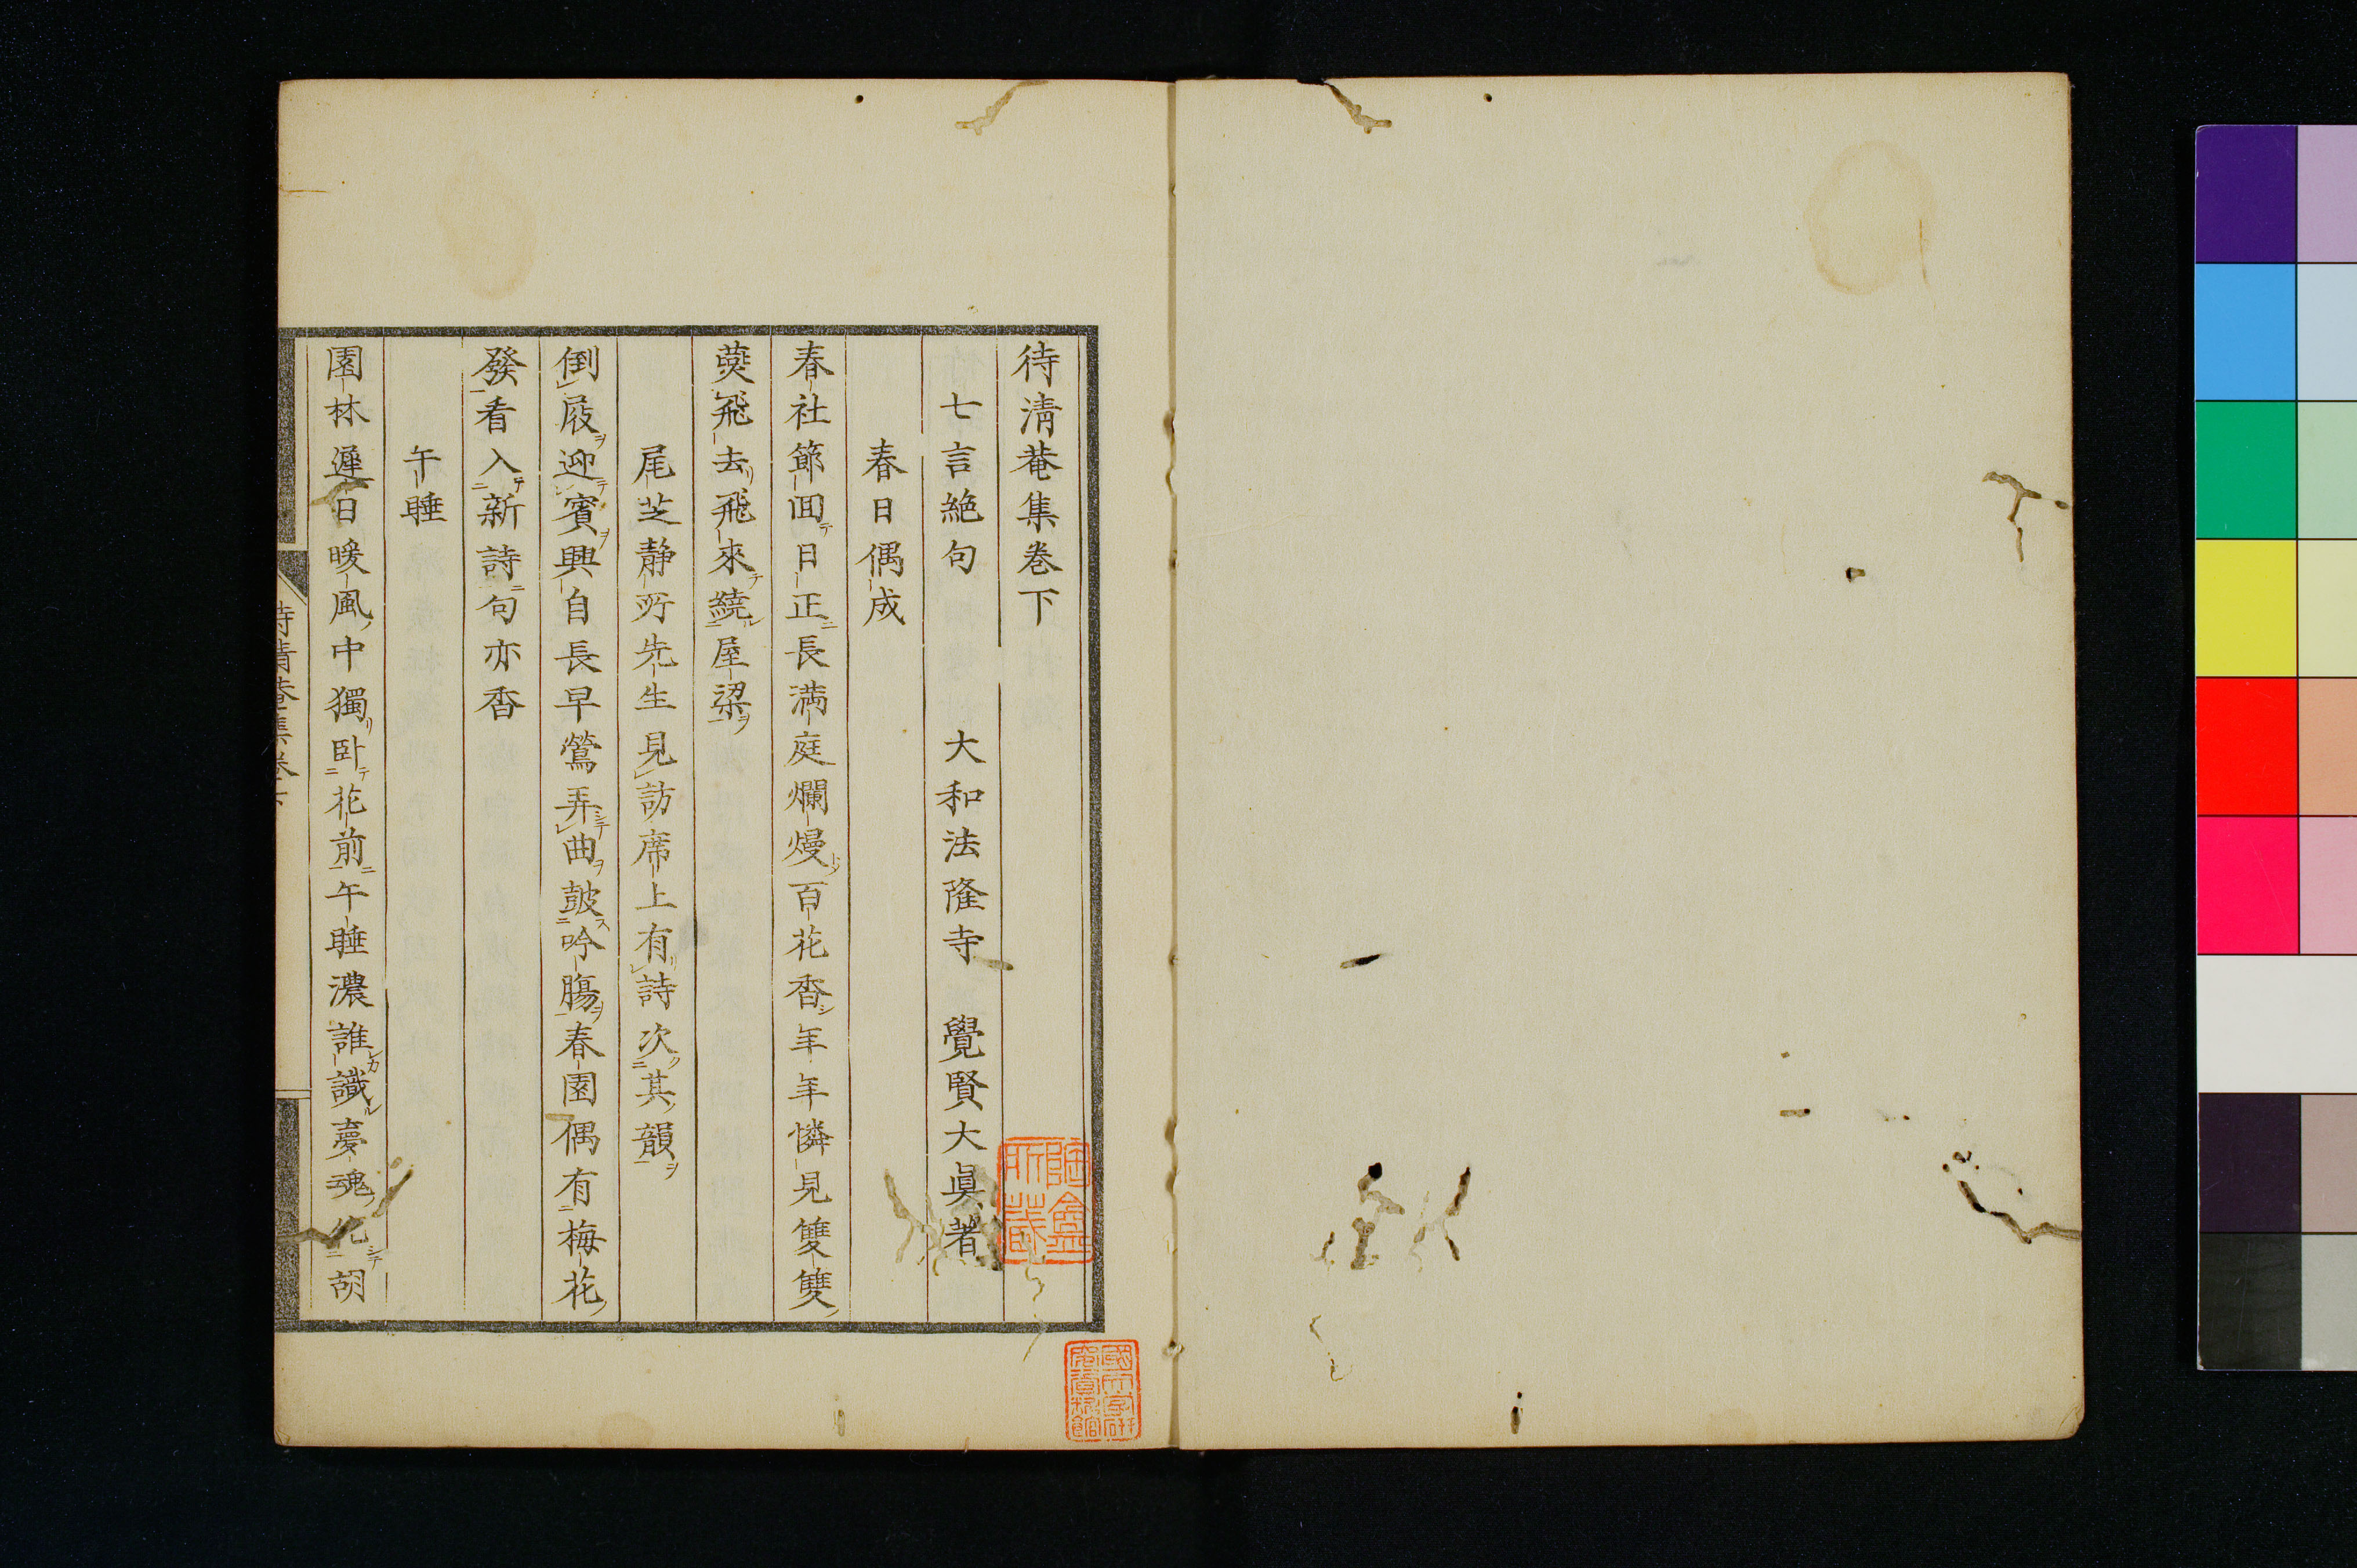 待清菴集卷下
七言絶句　大和法隆寺　覺賢大眞著
春日偶成
春社節囬日正長滿庭爛熳百花香年年憐見雙雙
䴏飛去飛來繞屋梁
尾芝静所先生見訪席上有詩次其韻
倒屐迎賓興自長早鶯弄曲皷吟腸春園偶有梅花
發看入新詩句亦香
午睡
園林遲日暖風中獨卧花前午睡濃誰識夢魂化胡
待清菴集卷下
陶盦所藏
國文學研究資料館